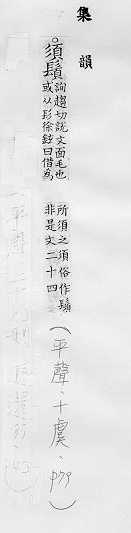 集韻
。須鬚
詢趨切說文面毛也
或从髟徐鉉曰借為
所須之須俗作鬚
非是文二十四
(平聲、十虞、p79)